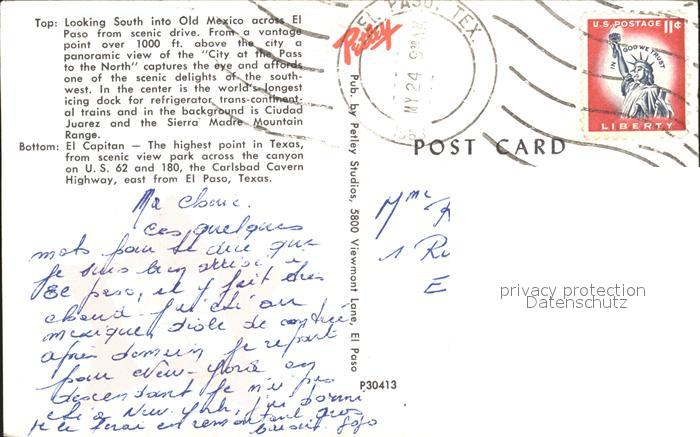 Top: Looking South into Old Mexico across El
Paso from scenic drive. From a vantage
point over 1000 ft. above the city a
panoramic view of the "City at the Pass
to the North" captures the eye and affords
one of the scenic delights of the south-
west. In the center is the world's longest
icing dock for refrigerator trans-continent-
al trains and in the background is Ciudad
Juarez and the Sierra Madre Mountain
Range.
Bottom: El Capitan — The highest point in Texas,
from scenic view park across the canyon
on U.S. 62 and 180, the Carlsbad Cavern
Highway, east from El Paso, Texas.
Ma
ces quelques
mots pour te dire que
je suis bien arrivé à
El paso, il y fait très
chaud. J'ai été au
mexique drole de
après demain je repart
pour New-York en
descendant je n'ai pas
été à New York,
Je le ferai en remontant gros
Petley
Pub. by Petley Studios, 5800 Viewmont Lane, El Paso
EL PASO, TEX.
MY 24
9 AM
U.S. POSTAGE 11¢
IN GOD WE TRUST
LIBERTY
POST CARD
Mme
1 Ru
E
privacy protection
Datenschutz
P30413